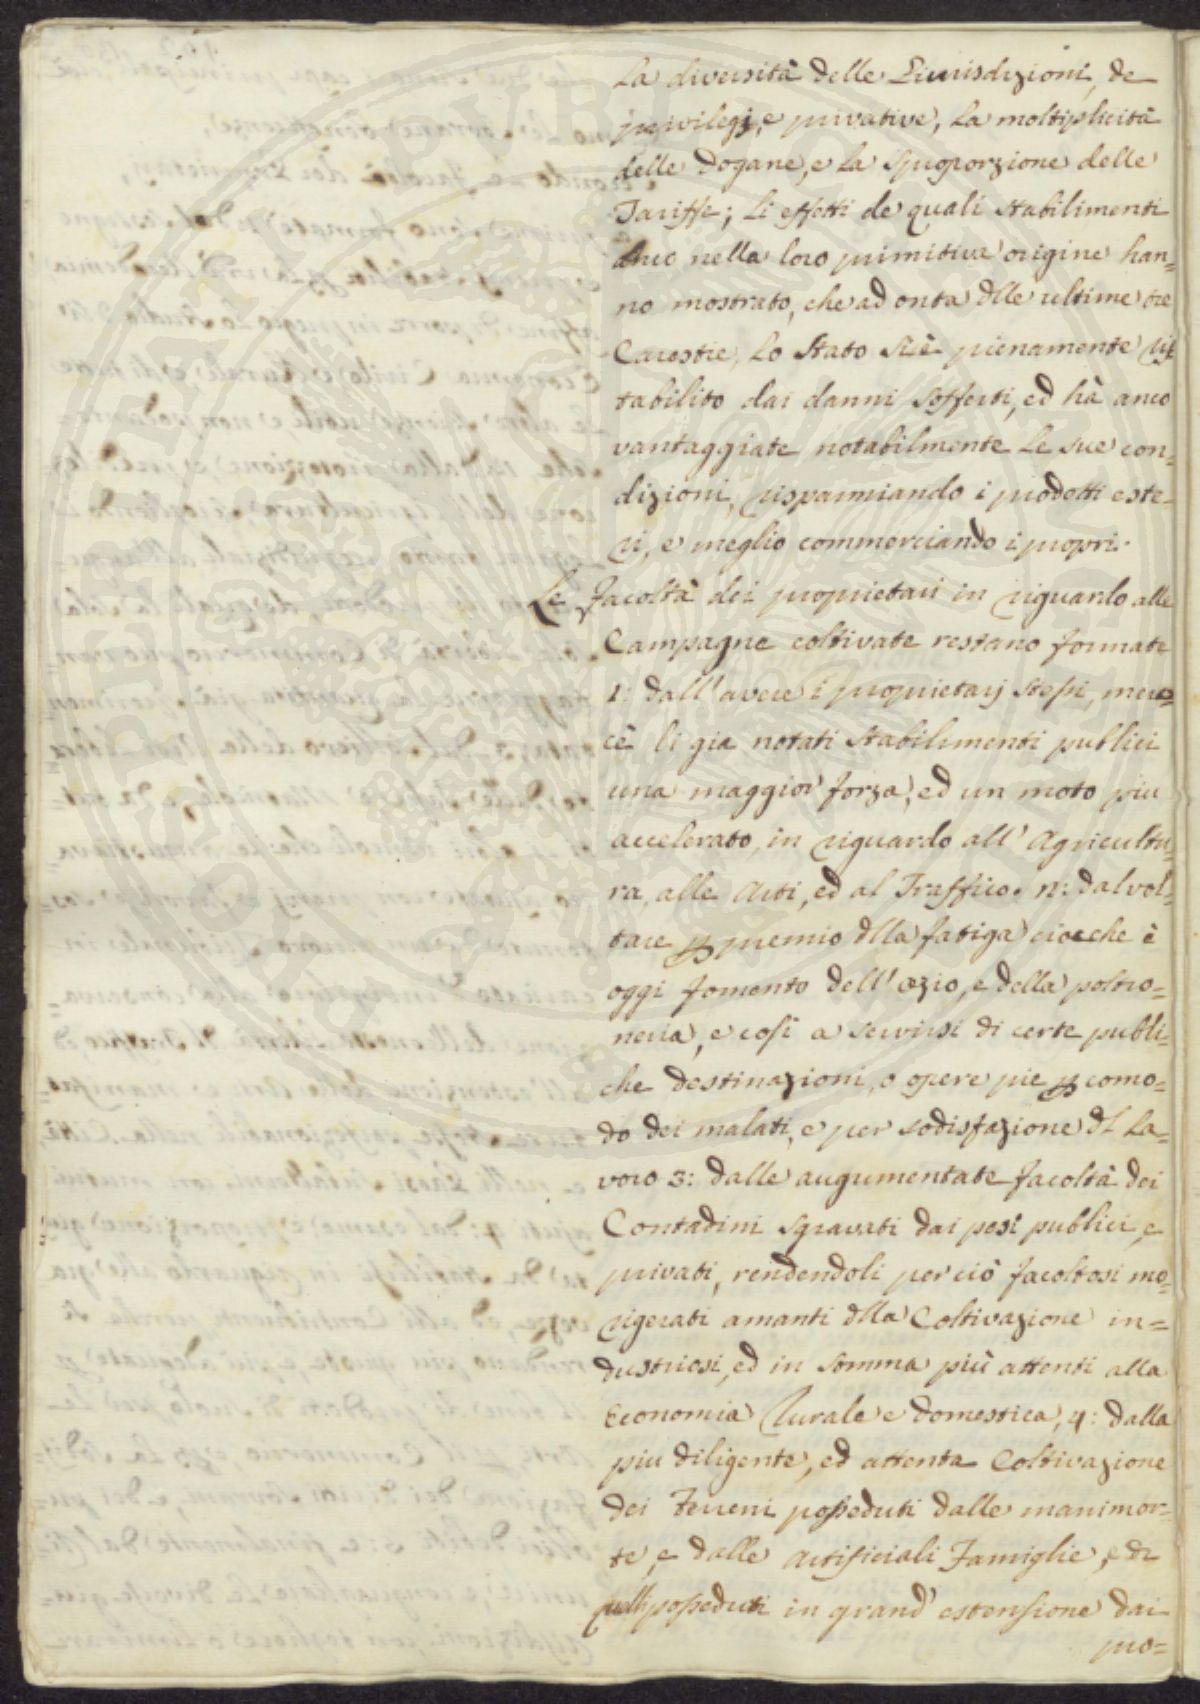 La diversità delle Giurisdizioni, de
privilegj, e privative, La moltiplicità
delle Dogane, e La sproporzione delle
Tariffe; Li effetti de quali stabilimenti
anco nella loro primitiva origine han=
no mostrato, che ad onta dlle ultime tre
Carestie, Lo Stato si è pienamente ris
tabilito dai danni sofferti, ed hà anco
vantaggiate notabilmente Le sue con=
dizioni, risparmiando i prodotti este=
ri, e meglio commerciando i propri.
Le facoltà dei proprietarj in riguardo alle
Campagne coltivate restano formate
1: dall'avere i proprietarj stessi, mer=
cè li gia notati stabilimenti publici
una maggior forza, ed un moto piu
accelerato, in riguardo all'Agricultu=
ra, alle Arti, ed al Traffico. n: dal vol=
tare p premio dlla fatiga ciocche è
oggi fomento dell'ozio, e della poltro=
neria, e così a servirsi di certe publi=
che destinazioni, o opere pie p como=
do dei malati, e per sodisfazione dl La=
voro 3: dalle augumentate facoltà dei
Contadini sgravati dai pesi publici, e
privati, rendendoli perciò facoltosi mo=
rigerati amanti dlla Coltivazione in=
dustriosi, ed in somma più attenti alla
Economia Rurale e domestica, 4: dalla
piu diligente, ed attenta Coltivazione
dei Terreni posseduti dalle manimor=
te, e dalle Artificiali Famiglie, e di
quelli posseduti in grand'estensione dai
pro=
POPULI PUBLICE